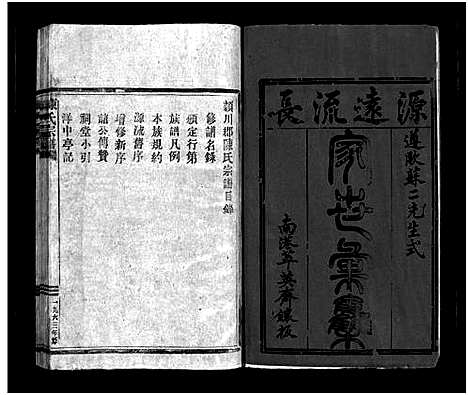 源遠流長
遵歐蘇二先生式
家世彙纂
南港萃英齋鐫板
潁川郡陳氏宗譜目錄
修譜名錄
頒定行第
族譜凡例
本族規約
源流舊序
增修新序
諸公傳贊
祠堂小引
洋中亭記
陳氏宗譜